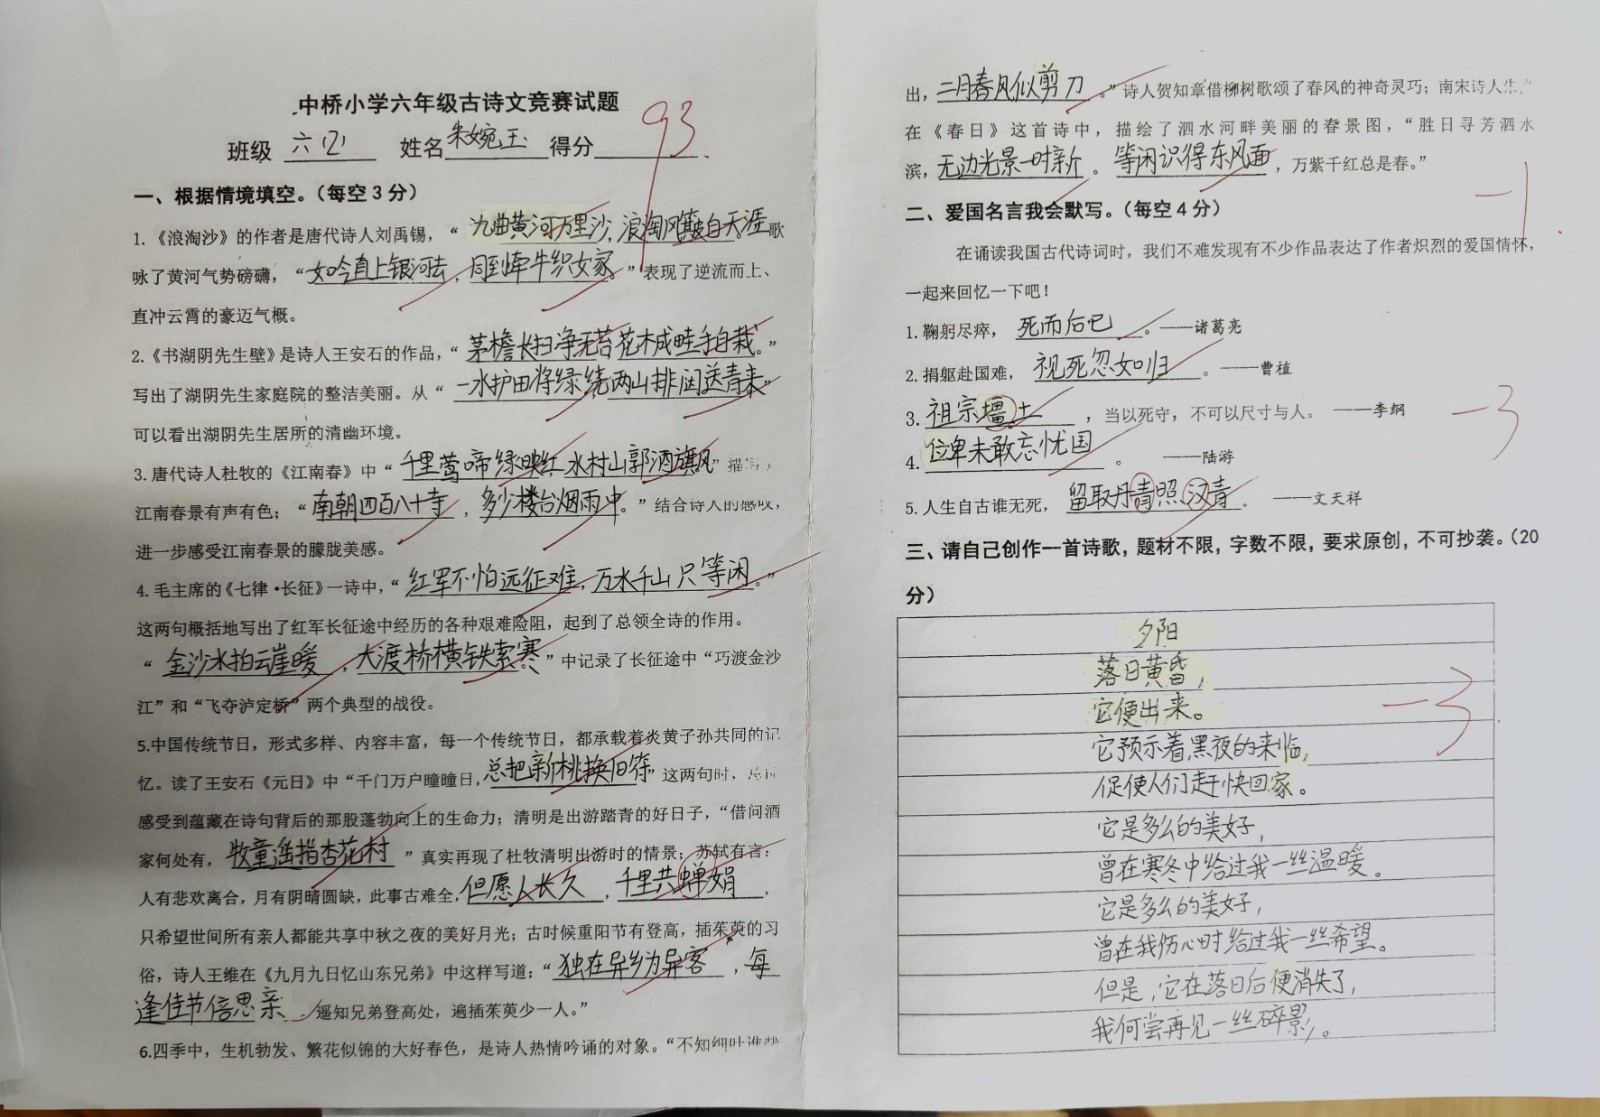 中桥小学六年级古诗文竞赛试题
班级 六(2) 姓名 朱婉玉 得分 93.
一、根据情境填空。（每空3分）
1.《浪淘沙》的作者是唐代诗人刘禹锡，“九曲黄河万里沙，浪淘风簸自天涯歌
咏了黄河气势磅礴，“如今直上银河去，同到牵牛织女家。”表现了逆流而上、
直冲云霄的豪迈气概。
2.《书湖阴先生壁》是诗人王安石的作品，“茅檐长扫净无苔花木成畦手自栽。”
写出了湖阴先生家庭院的整洁美丽。从“一水护田将绿绕两山排闼送青来”
可以看出湖阴先生居所的清幽环境。
3.唐代诗人杜牧的《江南春》中“千里莺啼绿映红，水村山郭酒旗风”描
江南春景有声有色；“南朝四百八十寺，多少楼台烟雨中。”结合诗人的感叹，
进一步感受江南春景的朦胧美感。
4.毛主席的《七律·长征》一诗中，“红军不怕远征难，万水千山只等闲。”
这两句概括地写出了红军长征途中经历的各种艰难险阻，起到了总领全诗的作用。
“金沙水拍云崖暖，大渡桥横铁索寒”中记录了长征途中“巧渡金沙
江”和“飞夺泸定桥”两个典型的战役。
5.中国传统节日，形式多样、内容丰富，每一个传统节日，都承载着炎黄子孙共同的记
忆。读了王安石《元日》中“千门万户曈曈日，总把新桃换旧符”这两句时，
感受到蕴藏在诗句背后的那股蓬勃向上的生命力；清明是出游踏青的好日子，“借问酒
家何处有，牧童遥指杏花村”真实再现了杜牧清明出游时的情景；苏轼有言：
人有悲欢离合，月有阴晴圆缺，此事古难全，但愿人长久，千里共蝉娟，
只希望世间所有亲人都能共享中秋之夜的美好月光；古时候重阳节有登高，插茱萸的习
俗，诗人王维在《九月九日忆山东兄弟》中这样写道：“独在异乡为异客，每
逢佳节倍思亲，遥知兄弟登高处，遍插茱萸少一人。”
6.四季中，生机勃发、繁花似锦的大好春色，是诗人热情吟诵的对象。“不知细叶谁裁
出，二月春风似剪刀。”诗人贺知章借柳树歌颂了春风的神奇灵巧；南宋诗人朱
在《春日》这首诗中，描绘了泗水河畔美丽的春景图，“胜日寻芳泗水
滨，无边光景一时新。等闲识得东风面，万紫千红总是春。”
-1
二、爱国名言我会默写。（每空4分）
在诵读我国古代诗词时，我们不难发现有不少作品表达了作者炽烈的爱国情怀，
一起来回忆一下吧！
1.鞠躬尽瘁，死而后已。——诸葛亮
2.捐躯赴国难，视死忽如归。——曹植
3.祖宗疆土，当以死守，不可以尺寸与人。——李纲
-3
4.位卑未敢忘忧国。——陆游
5.人生自古谁无死，留取丹青照汉青。——文天祥
三、请自己创作一首诗歌，题材不限，字数不限，要求原创，不可抄袭。（20
分）
夕阳
落日黄昏，
它便出来。
-3
它预示着黑夜的来临，
促使人们赶快回家。
它是多么的美好，
曾在寒冬中给过我一丝温暖。
它是多么的美好，
曾在我伤心时给过我一丝希望。
但是，它在落日后便消失了，
我何尝再见一丝碎影。